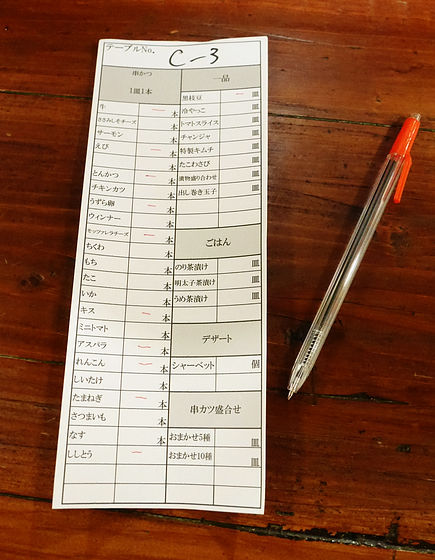 テーブルNo. C-3
串かつ
1皿1本
牛 一 本
ささみしそチーズ 本
サーモン 本
えび 一 本
とんかつ 一 本
チキンカツ 本
うずら卵 一 本
ウィンナー 本
モッツァレラチーズ 一 本
ちくわ 本
もち 本
たこ 本
いか 本
キス 一 本
ミニトマト 本
アスパラ 一 本
れんこん 一 本
しいたけ 本
たまねぎ 一 本
さつまいも 本
なす 本
ししとう 一
一品
黒枝豆 一 皿
冷やっこ 皿
トマトスライス 皿
チャンジャ 皿
特製キムチ 皿
たこわさび 皿
漬物盛り合わせ 皿
出し巻き玉子 皿
ごはん
のり茶漬け 皿
明太子茶漬け 皿
うめ茶漬け 皿
デザート
シャーベット 個
串カツ盛合せ
おまかせ5種 皿
おまかせ10種 皿